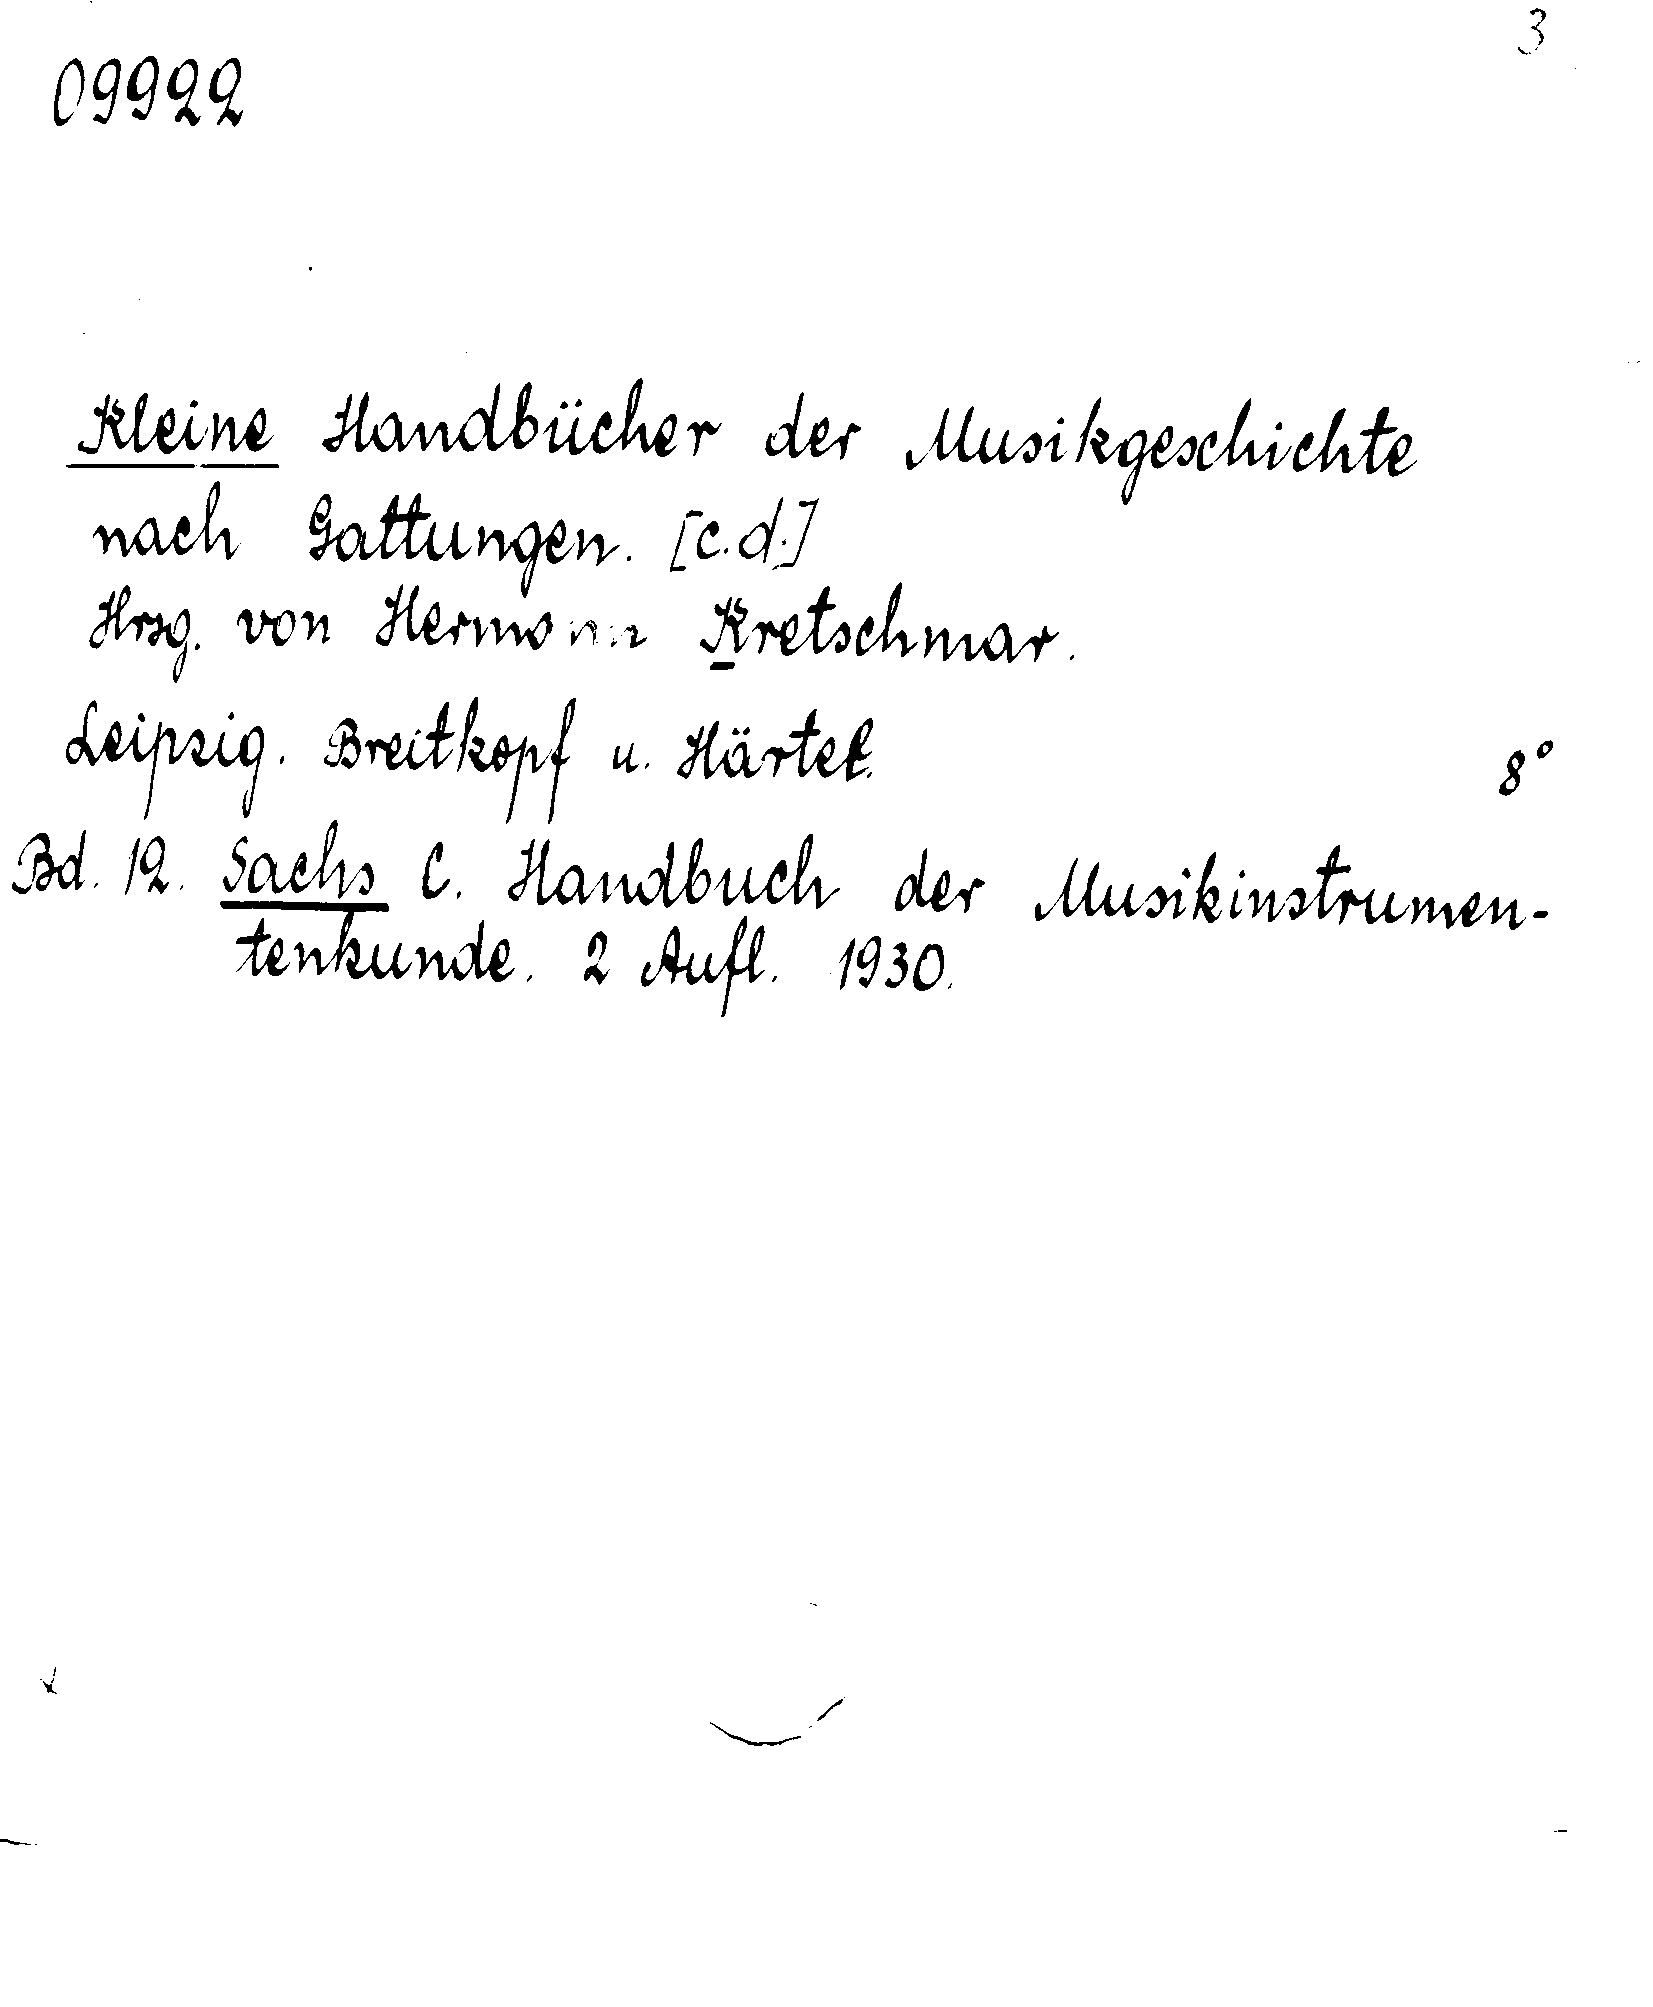 3
09922
Kleine Handbücher der Musikgeschichte
nach Gattungen. [c.d.]
Hrsg. von Hermann Kretschmar.
Leipzig. Breitkopf u. Härtel.
8°
Bd. 12. Sachs C. Handbuch der Musikinstrumen-
tenkunde. 2 Aufl. 1930.